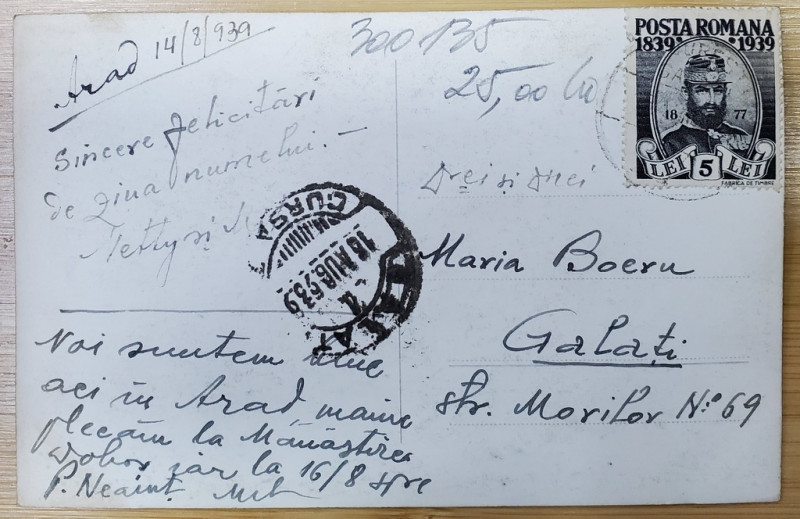 Arad 14/8/939
Sincere felicitări
de ziua numelui.-
Netty și
Noi suntem
aci in Arad, maine
plecăm la Mănăstirea
iar la 16/8 spre
P. Neamț
300135
25,00
POSTA ROMANA
1839 1939
18 77
LEI 5 LEI
FABRICA DE TIMBRE
D-rei și D-nei
Maria Boeru
Galați
str. Morilor No. 69
CURSA
16 AUG 939